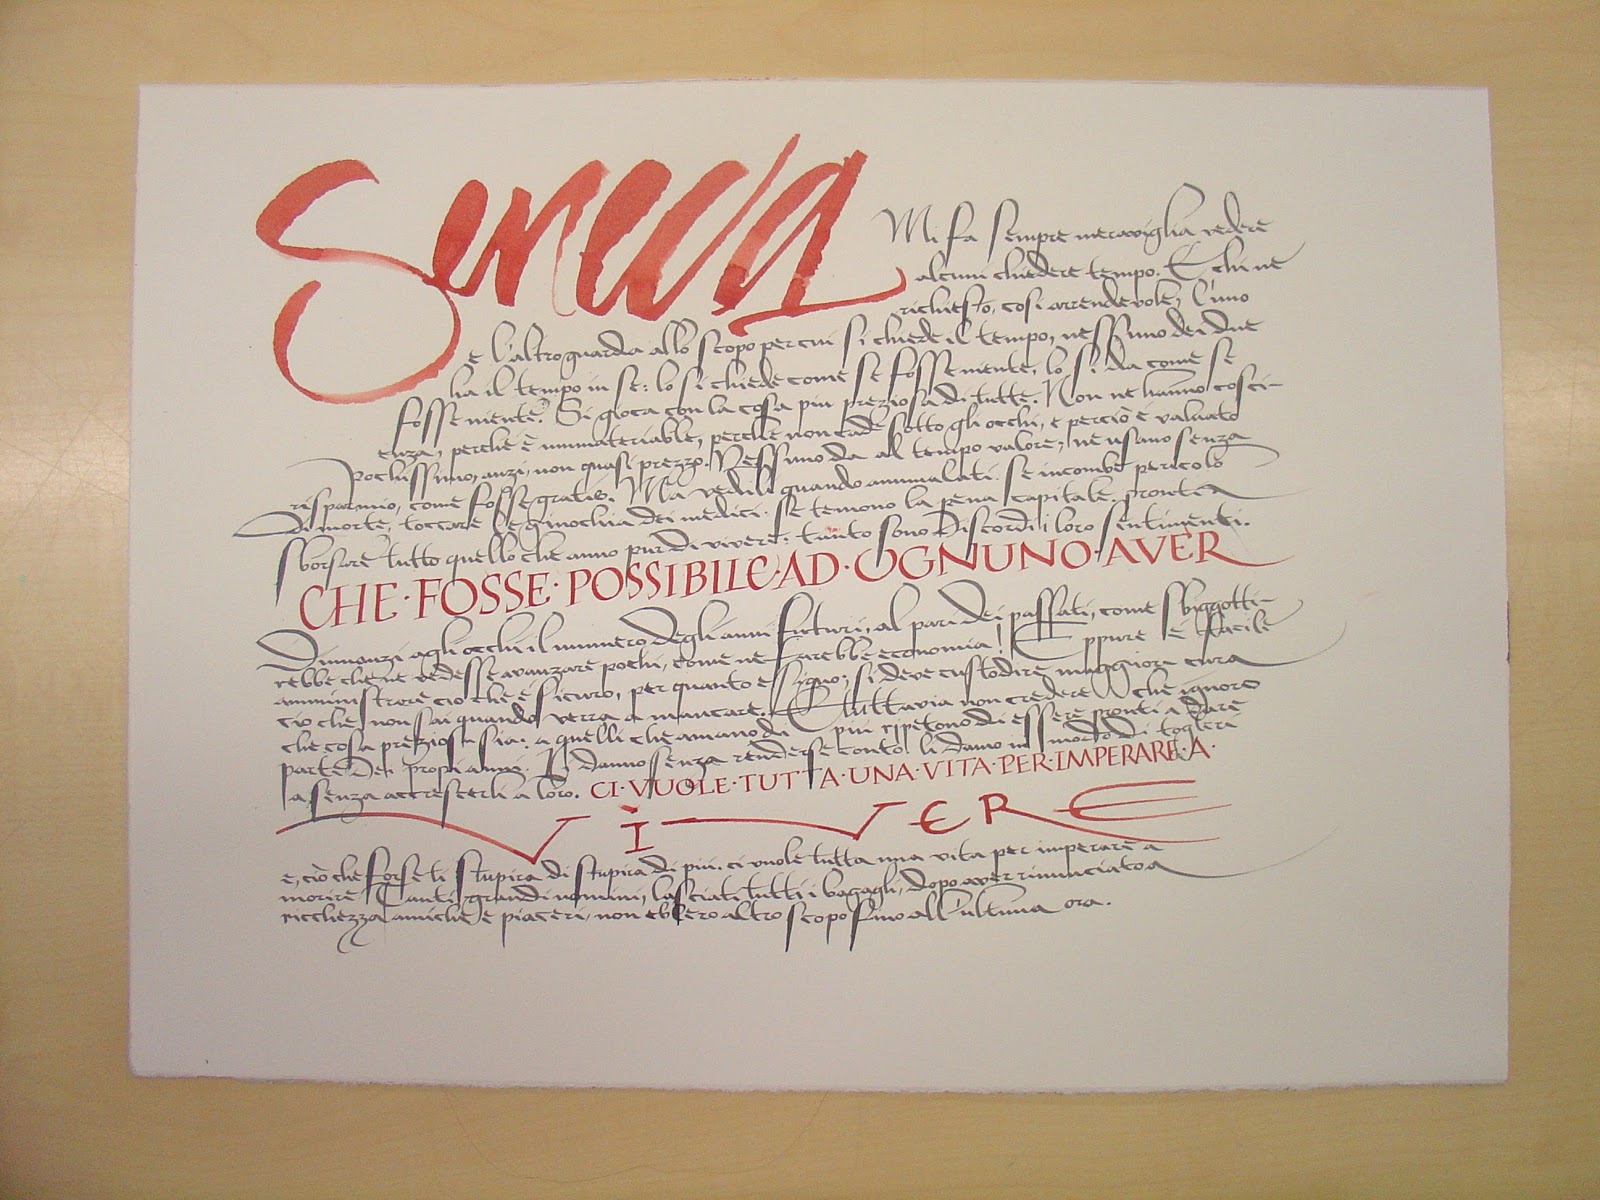 Seneca
Mi fa sempre meraviglia vedere
alcuni chiedere tempo. E chi ne
richiesto, così arrendevole; l'uno
e l'altro guarda allo scopo per cui si chiede il tempo, nessuno dei due
ha il tempo in se: lo si chiede come se fosse niente, lo si da come se
fosse niente. Si gioca con la cosa più preziosa di tutte. Non ne hanno cosci-
enza, perche è immateriable, perche non cade sotto gli occhi, e perciò è valuato
pochissimo, anzi, non quasi prezzo. Nessuno da al tempo valore; ne usano senza
risparmio, come fosse gratis. Ma vedili quando ammalati. se incombe pericolo
di morte, toccare le ginochia dei medici. se temono la pena capitale. pronti a
sborsare tutto quello che anno pur di vivere: tanto sono discordi i loro sentimenti.
CHE·FOSSE·POSSIBILE·AD·OGNUNO·AVER
Dinnanzi agli occhi il numero degli anni futuri, al pari dei passati, come sbiggotti-
rebbe chi ne vedesse avanzare pochi, come ne farebbe economia! Eppure è facile
amministrare ciò che è sicuro, per quanto esiguo; si deve custodire maggiore cura
ciò che non sai quando verra a mancare. Tuttavia non credere che ignoro
che cosa preziosa sia: a quelli che amano di più ripetono di essere pronti a dare
parte dei propi anni. Li danno senza renderse conto. li danno in modo di togleri
a, senza accrescerli a loro. CI·VUOLE·TUTTA·UNA·VITA·PER·IMPERARE·A·
VIVERE
e, ciò che forse ti stupira di stupira di più. ci vuole tutta una vita per imperare a
morire Tanti grandi uomini, lasciati tutti i bagagli, dopo aver rinunciato a
ricchezza amiche e piaceri, non ebbero altro scopo fino all'ultima ora.